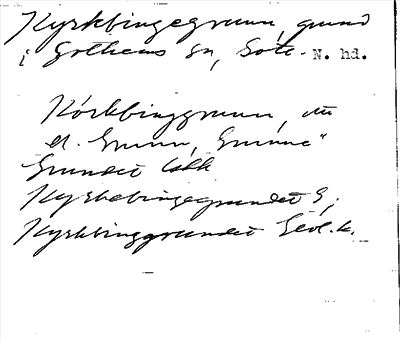 Kyrkbingegrunn, grund
i Gothems sn, Gotl. N. hd.
Körkbinggrunn, 
el. Grunn, Grunne"
Grundet
Kyrkebingegrundet G;
Kyrkbinggrundet Geol. k.